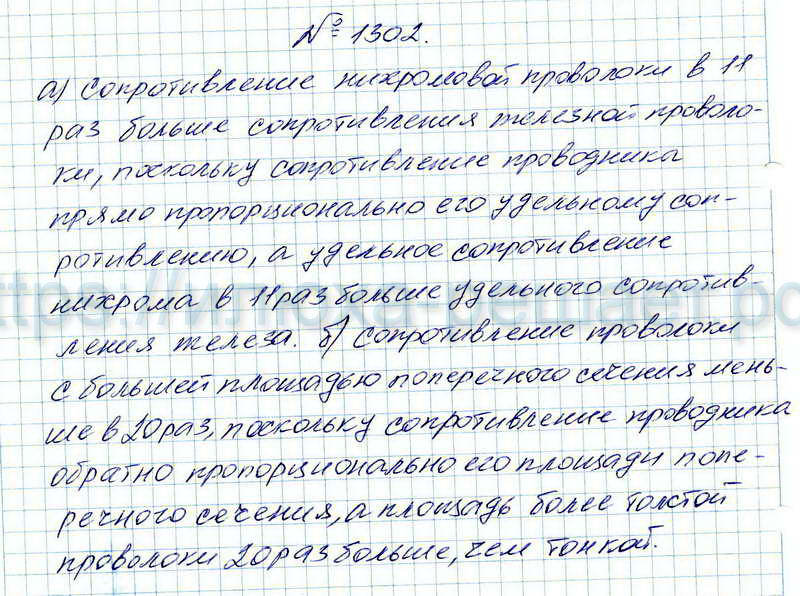 № 1302.
а) сопротивление нихромовой проволоки в 11
раз больше сопротивления железной проволо-
ки, поскольку сопротивление проводника
прямо пропорционально его удельному соп-
ротивлению, а удельное сопротивление
нихрома в 11 раз больше удельного сопротив-
ления железа. б) сопротивление проволоки
с большей площадью поперечного сечения мень-
ше в 20 раз, поскольку сопротивление проводника
обратно пропорционально его площади попе-
речного сечения, а площадь более толстой
проволоки 20 раз больше, чем тонкой.